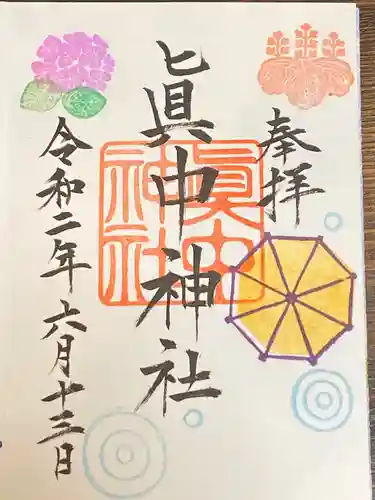 奉拝
眞中神社
眞中神社
令和二年六月十三日